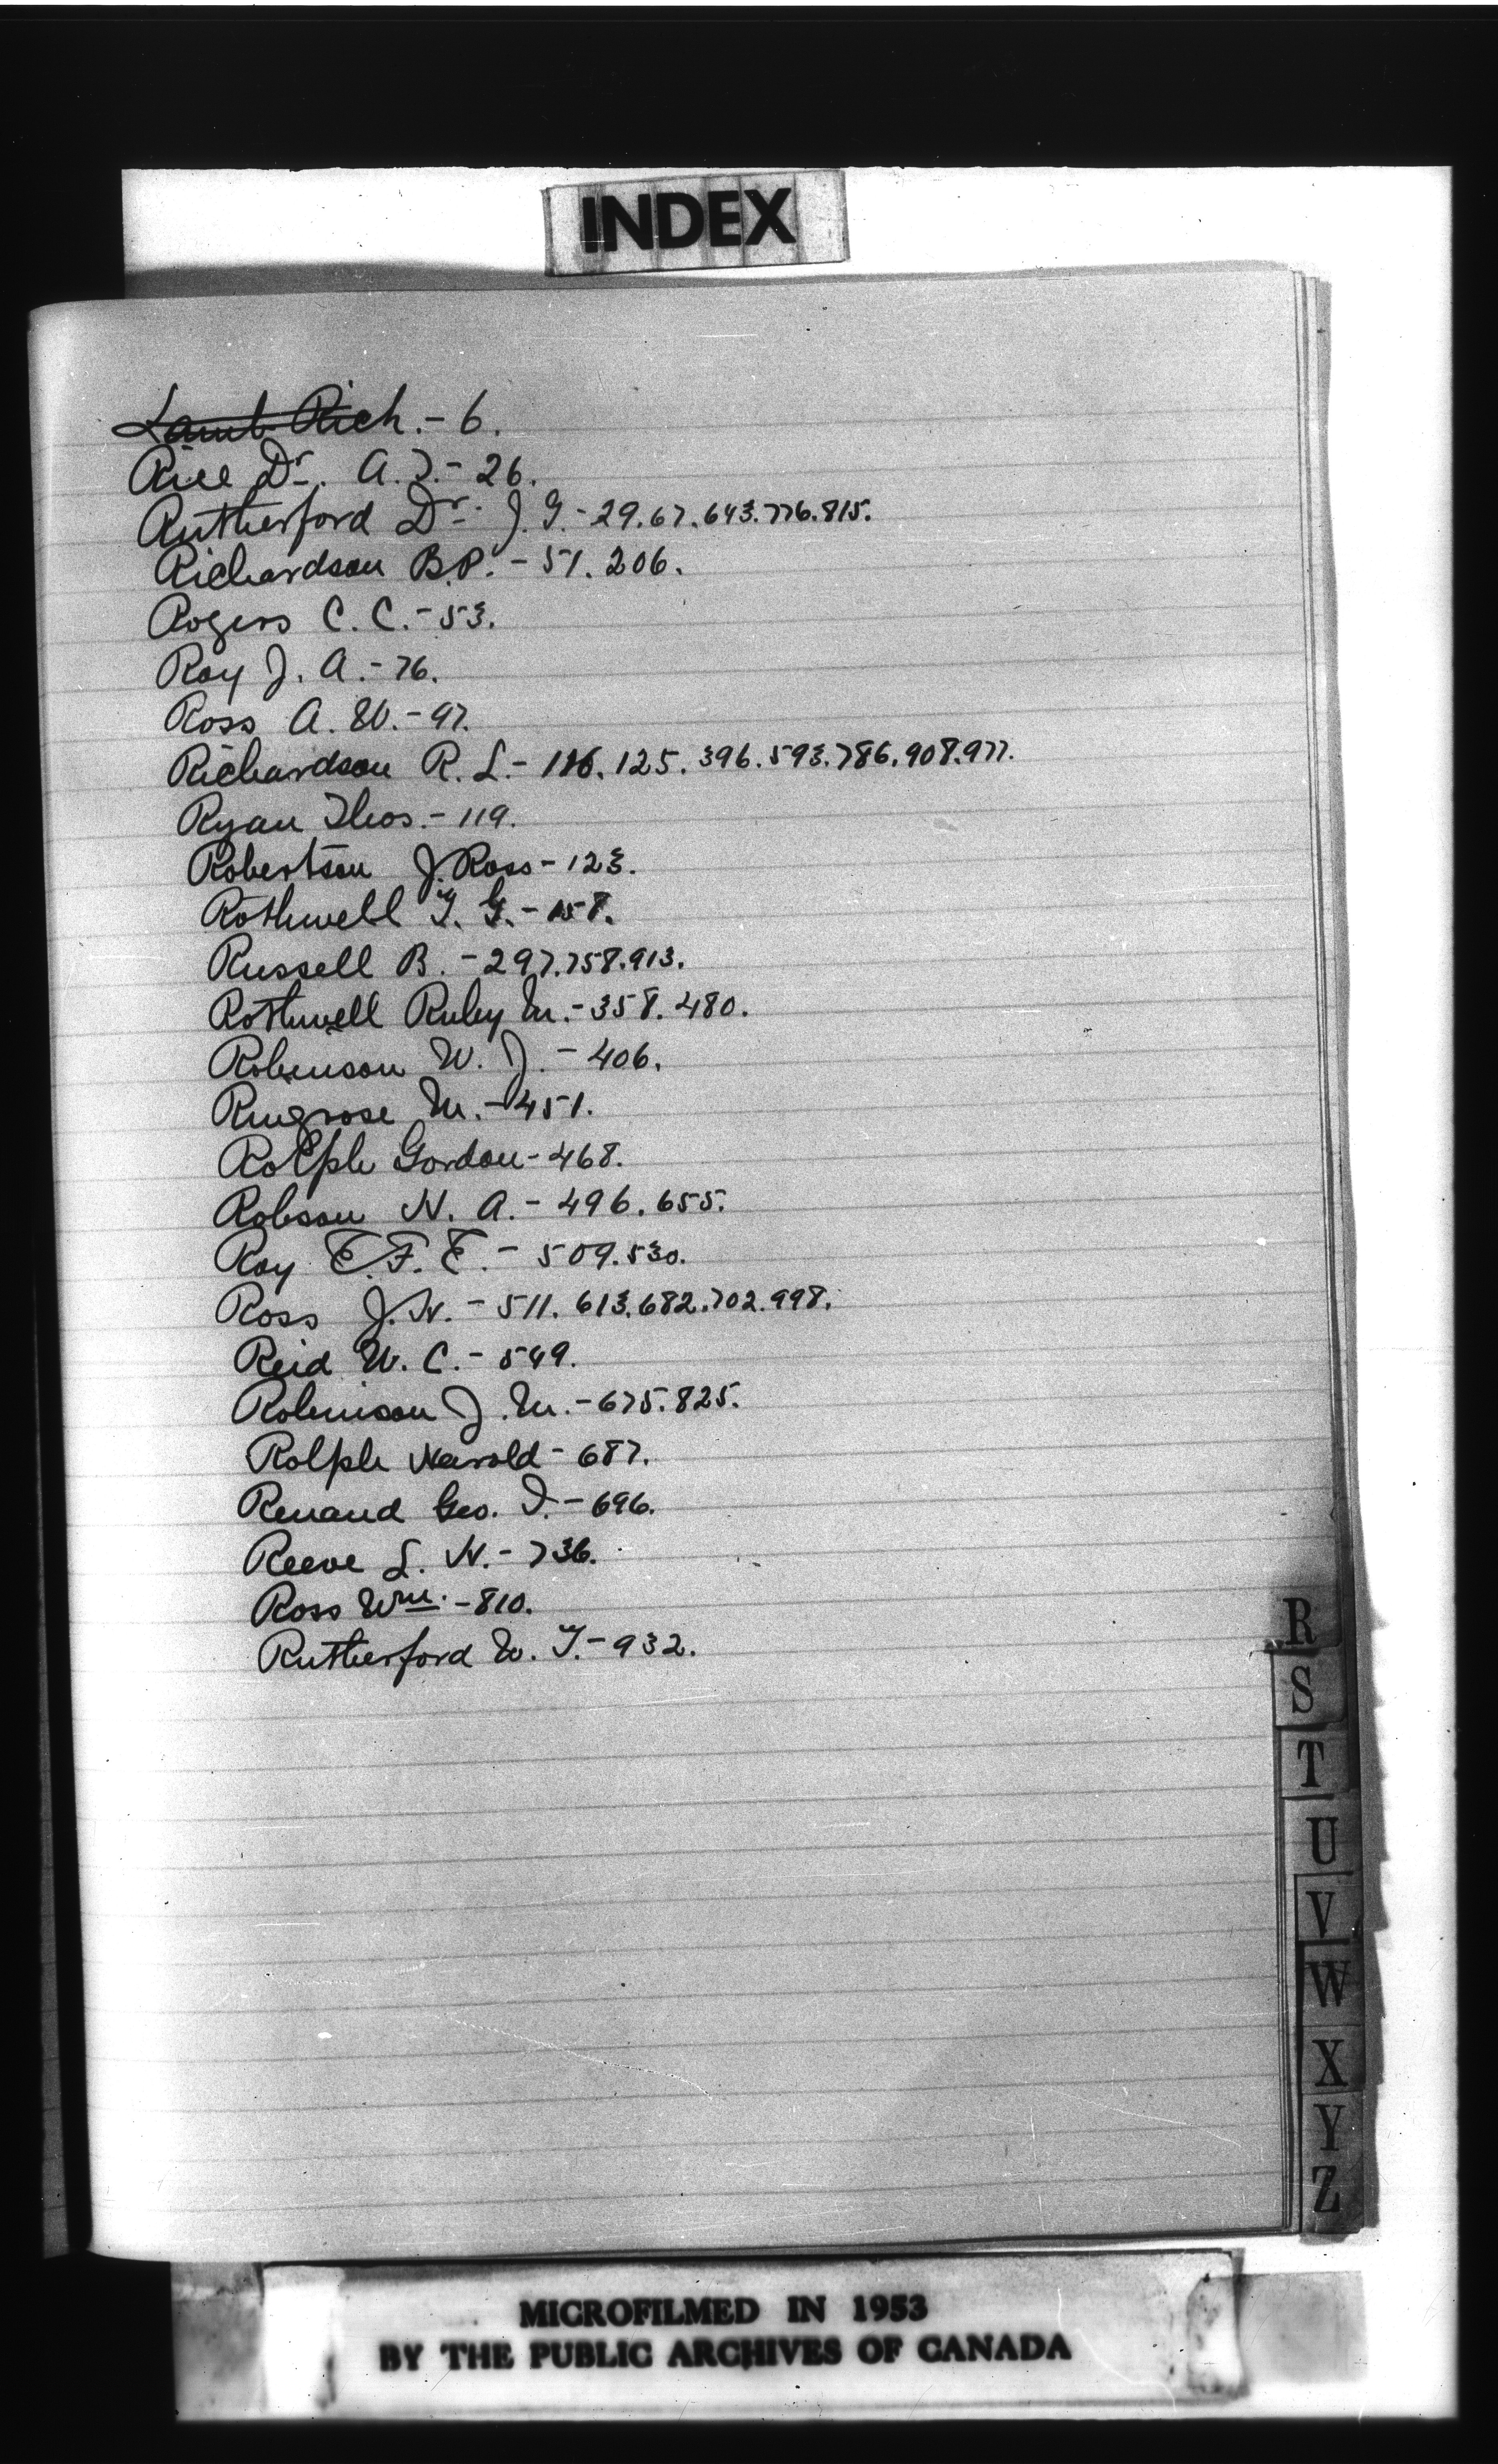 INDEX
Lamb Rich. - 6.
Rice Dr. A. T. - 26.
Rutherford Dr. J. G. - 29. 67. 643. 776. 815.
Richardson B.P. - 51. 206.
Rogers C. C. - 53.
Roy J. A. - 76.
Ross A. W. - 97.
Richardson R. L. - 116. 125. 396. 593. 786. 908. 977.
Ryan Thos. - 119.
Robertson J. Ross - 123.
Rothwell T. G. - 158.
Russell B. - 297. 758. 913.
Rothwell Ruby M. - 358. 480.
Robinson W. J. - 406.
Ringrose M. - 451.
Rolph Gordon - 468.
Robson H. A. - 496. 655.
Roy E. F. E. - 509. 530.
Ross J. H. - 511. 613. 682. 702. 998.
Reid W. C. - 549.
Robinson J. M. - 675. 825.
Rolph Harold - 687.
Renaud Geo. I. - 696.
Reeve L. H. - 736.
Ross Wm. - 810.
Rutherford W. T. - 932.
R
S
T
U
V
W
X
Y
Z
MICROFILMED IN 1953
BY THE PUBLIC ARCHIVES OF CANADA